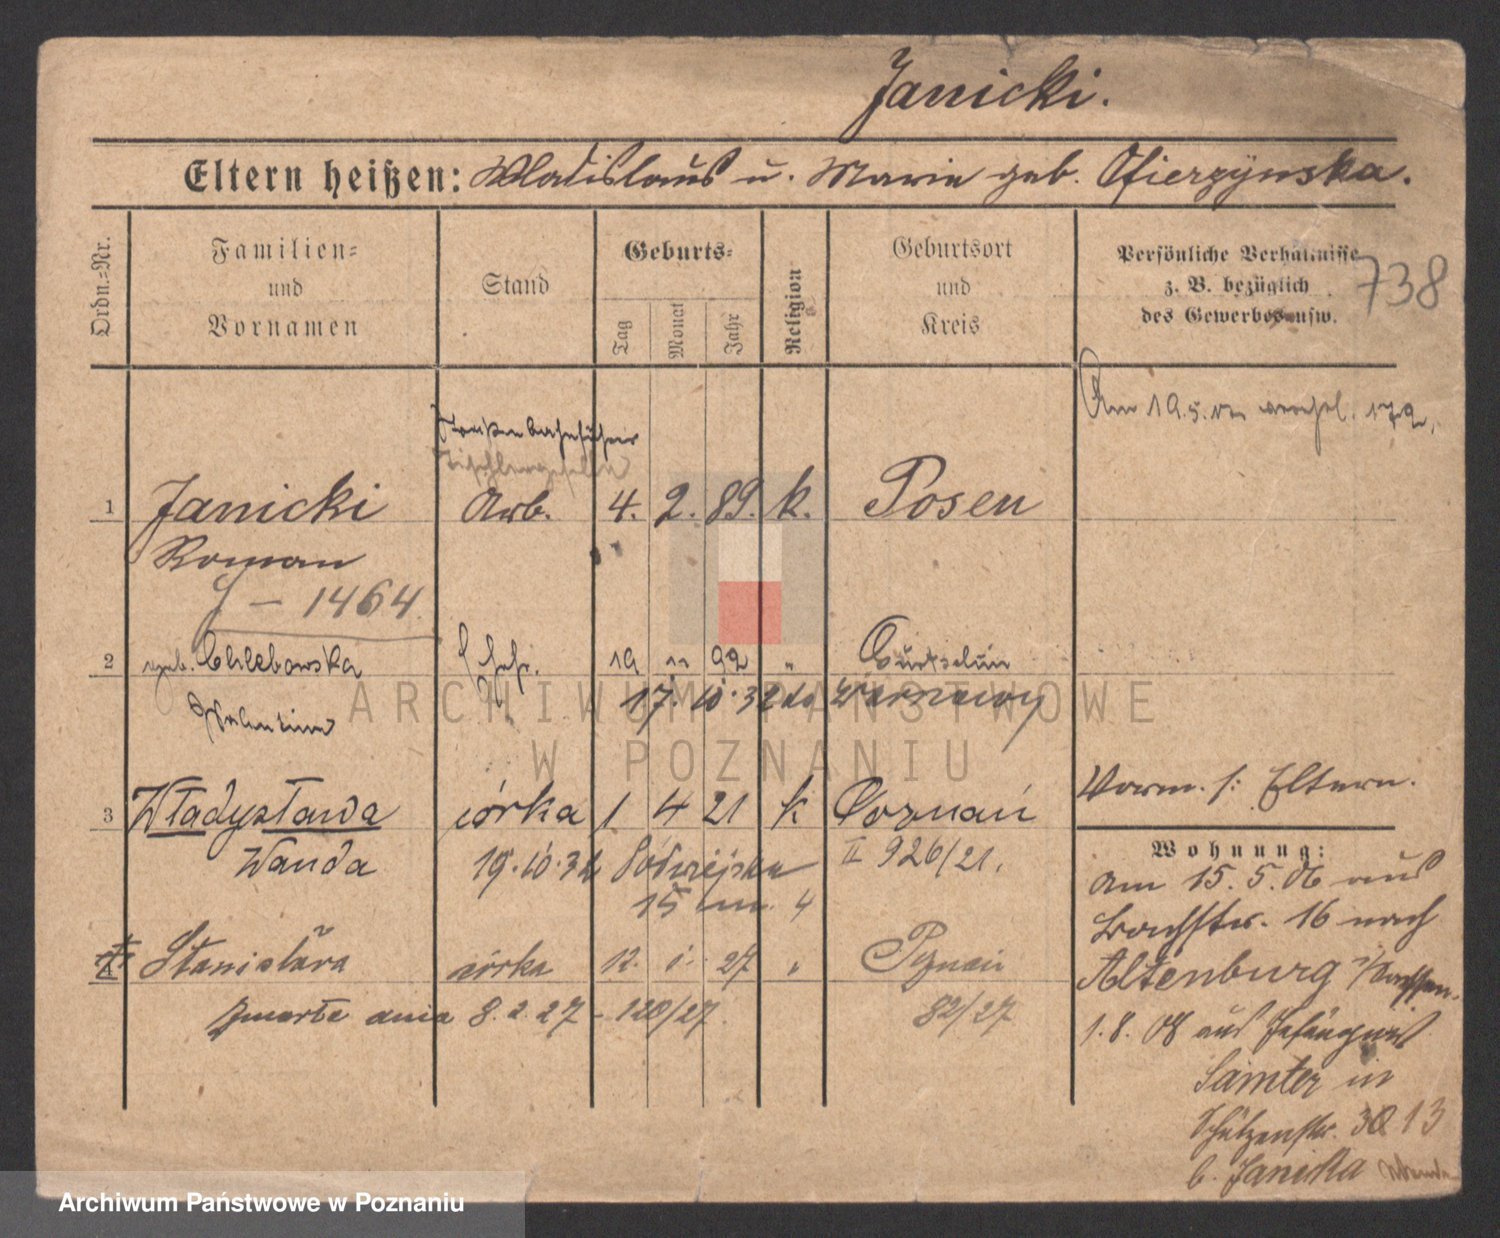 Janicki.
Eltern heißen: Wladislaus u. Marie geb. Ofierzynska.
Ordn.-Nr.
Familien-
und
Vornamen
Stand
Geburts-
Tag
Monat
Jahr
Religion
Geburtsort
und
Kreis
Persönliche Verhältnisse
z. B. bezüglich
des Gewerbes usw.
738
Am 19.5.
1 Janicki Arb. 4. 2. 89. k. Posen
Roman
J – 1464
2 geb. Chlebowska Ehefr. 19 11 92 " Gurtschin
17. 10. 32 do Warszawy
Valentine
Vorm. s: Eltern.
3 Władysława córka 1 4 21 k Poznań
Wanda 19. 10. 32 15 m. 4 II 926/21.
Wohnung:
Am 15. 5. 06 aus
Bachstr. 16 nach
4 Stanisława córka 12. 1. 27 " Poznań
Altenburg i/Sachsen.
zmarła dnia 8. 2. 27 – 120/27 82/27
1. 8. 08 aus Gefängnis
Samter in
Schützenstr. 30 13
b. Janicka
ARCHIWUM PAŃSTWOWE
W POZNANIU
Archiwum Państwowe w Poznaniu